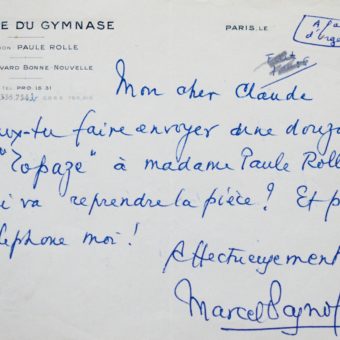 E DU GYMNASE
ON PAULE ROLLE
VARD BONNE NOUVELLE
TEL. PRO 16 31
PARIS, LE
Mon cher Claude
ux-tu faire envoyer une douza
"Topaze" à madame Paule Roll
i va reprendre la pièce? Et p
léphone moi!
Affectueusement
Marcel Pagnol